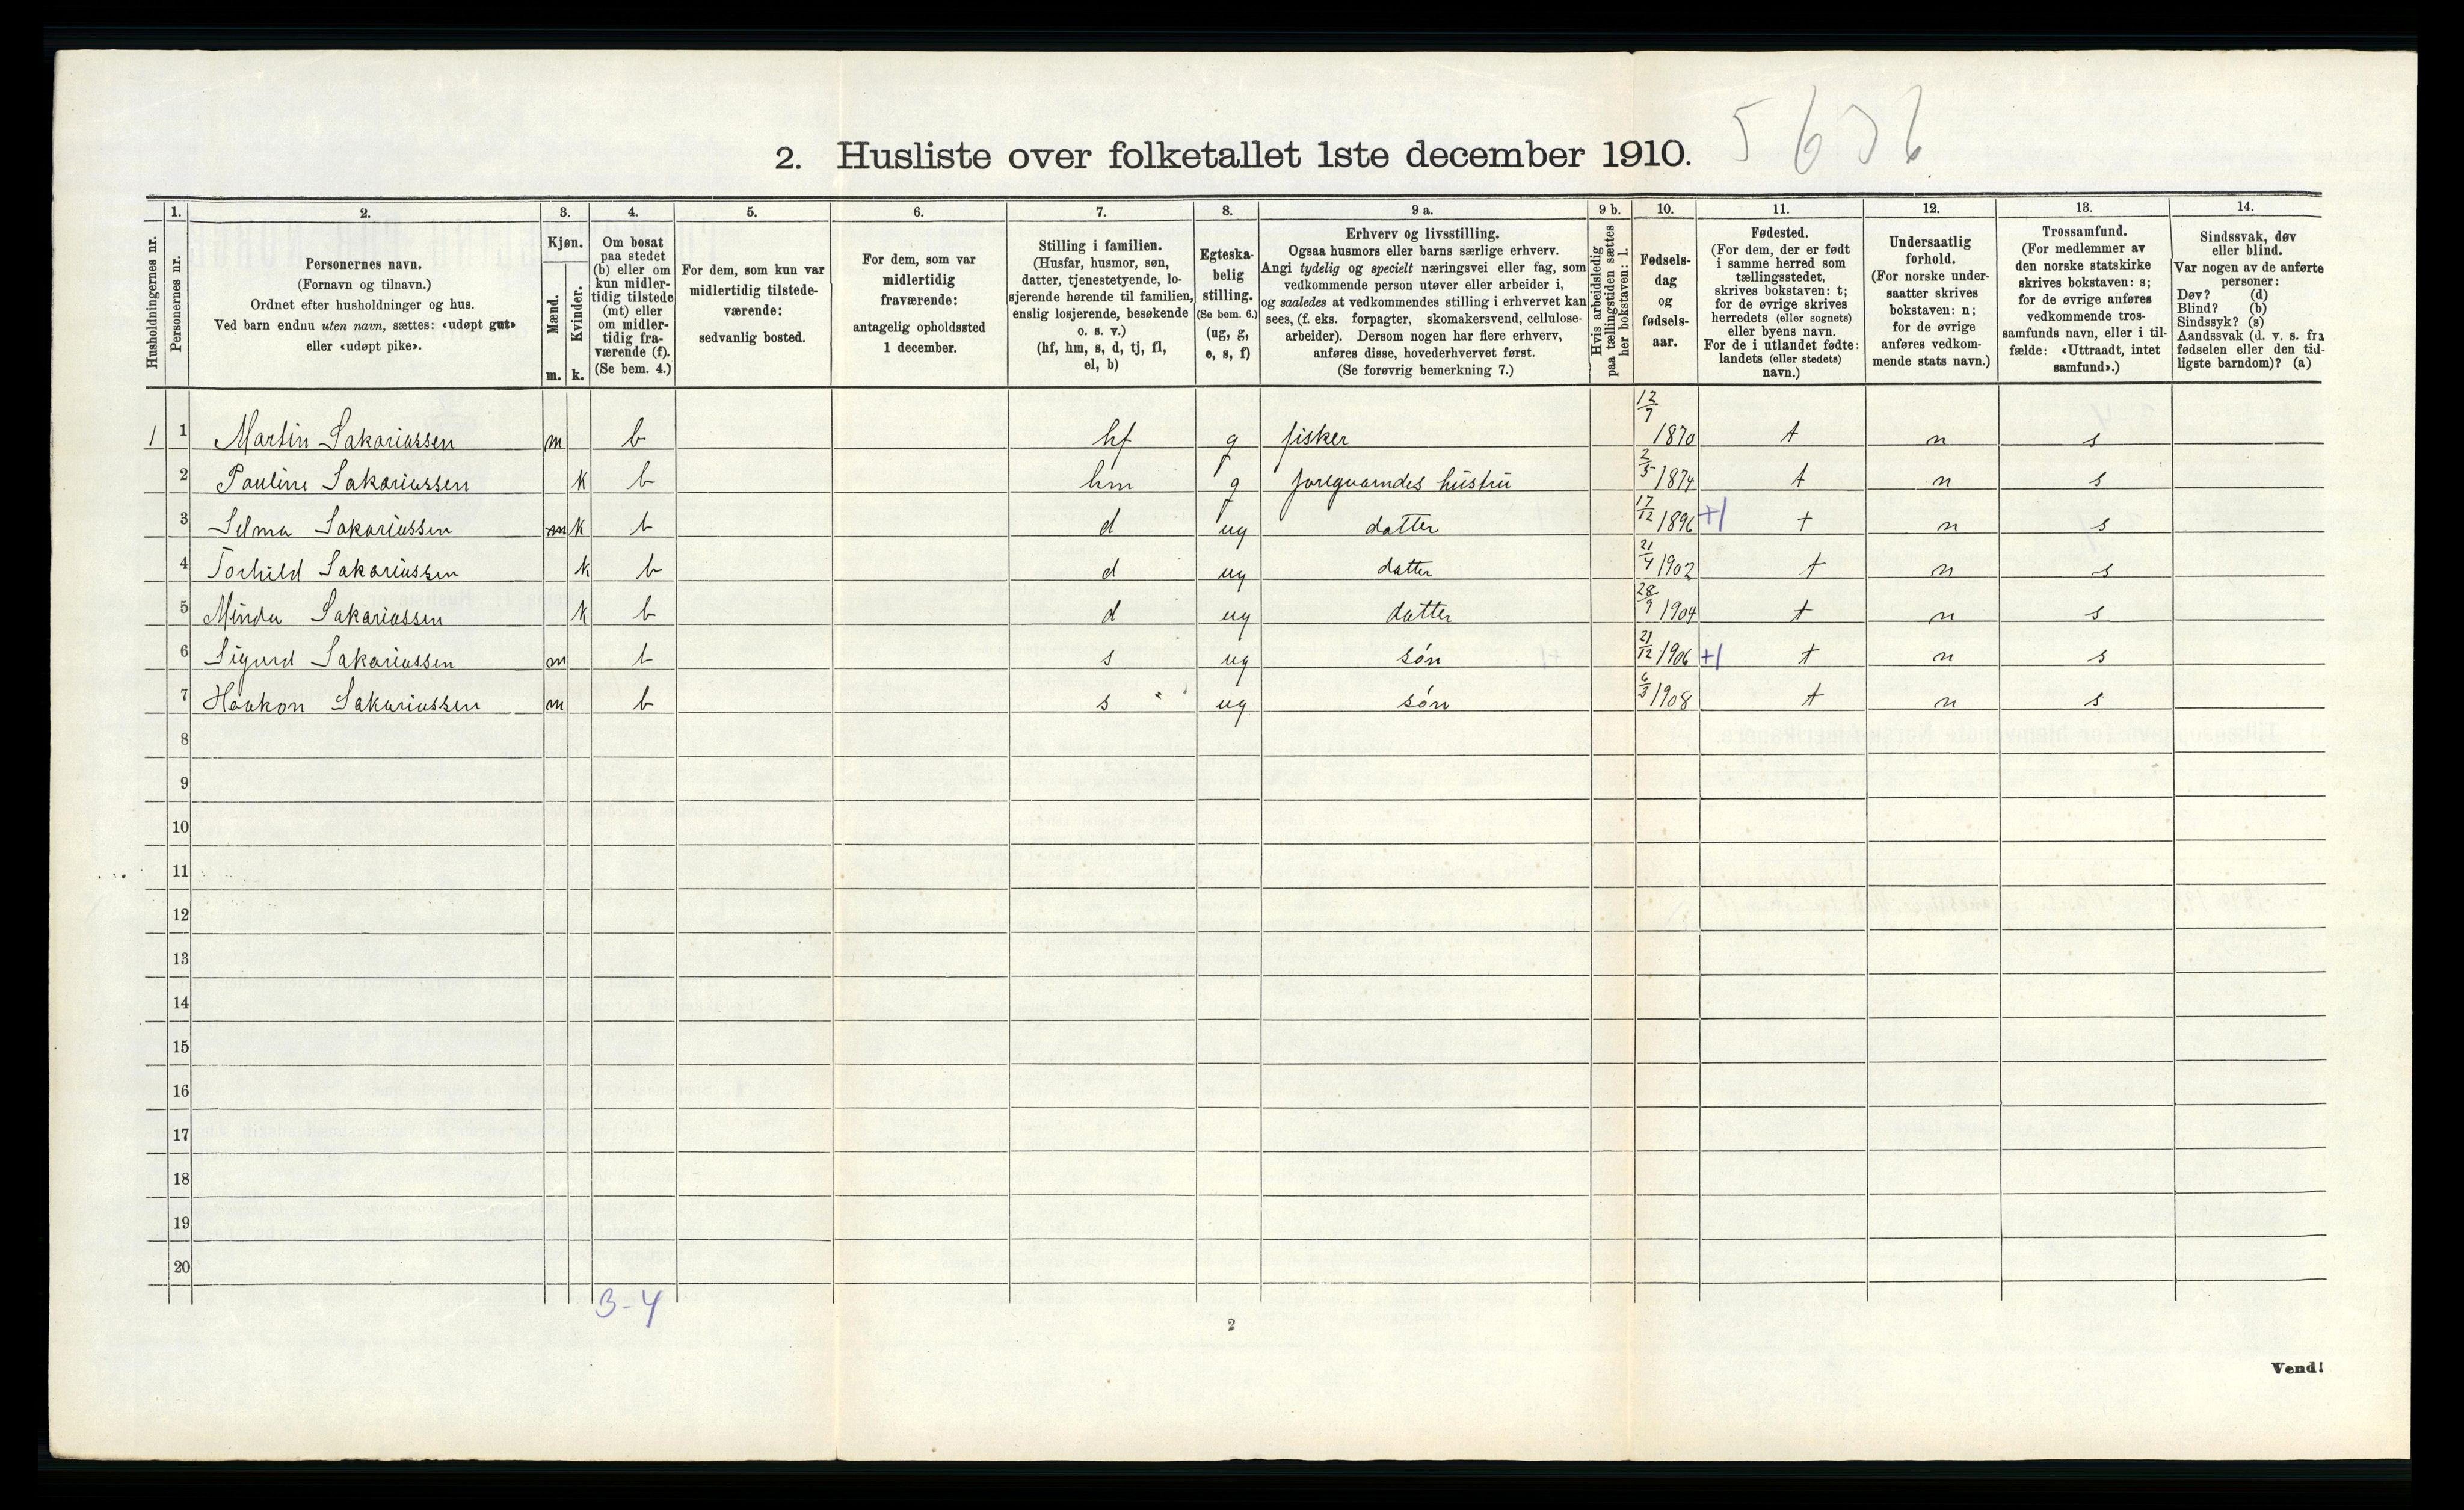 5636
2. Husliste over folketallet 1ste december 1910.
1. 2. 3. 4. 5. 6. 7. 8. 9 a. 9 b. 10. 11. 12. 13. 14.
Husholdningernes nr.
Personernes nr.
Personernes navn.
(Fornavn og tilnavn.)
Ordnet efter husholdninger og hus.
Ved barn endnu uten navn, sættes: «udøpt gut»
eller «udøpt pike».
Kjøn.
Mænd.
Kvinder.
m. k.
Om bosat
paa stedet
(b) eller om
kun midler-
tidig tilstede
(mt) eller
om midler-
tidig fra-
værende (f).
(Se bem. 4.)
For dem, som kun var
midlertidig tilstede-
værende:
sedvanlig bosted.
For dem, som var
midlertidig
fraværende:
antagelig opholdssted
1 december.
Stilling i familien.
(Husfar, husmor, søn,
datter, tjenestetyende, lo-
sjerende hørende til familien,
enslig losjerende, besøkende
o. s. v.)
(hf, hm, s, d, tj, fl,
el, b)
Egteska-
belig
stilling.
(Se bem. 6.)
(ug, g,
e, s, f)
Erhverv og livsstilling.
Ogsaa husmors eller barns særlige erhverv.
Angi tydelig og specielt næringsvei eller fag, som
vedkommende person utøver eller arbeider i,
og saaledes at vedkommendes stilling i erhvervet kan
sees, (f. eks. forpagter, skomakersvend, cellulose-
arbeider). Dersom nogen har flere erhverv,
anføres disse, hovederhvervet først.
(Se forøvrig bemerkning 7.)
Hvis arbeidsledig
paa tællingstiden sættes
her bokstaven: l.
Fødsels-
dag
og
fødsels-
aar.
Fødested.
(For dem, der er født
i samme herred som
tællingsstedet,
skrives bokstaven: t;
for de øvrige skrives
herredets (eller sognets)
eller byens navn.
For de i utlandet fødte:
landets (eller stedets)
navn.)
Undersaatlig
forhold.
(For norske under-
saatter skrives
bokstaven: n;
for de øvrige
anføres vedkom-
mende stats navn.)
Trossamfund.
(For medlemmer av
den norske statskirke
skrives bokstaven: s;
for de øvrige anføres
vedkommende tros-
samfunds navn, eller i til-
fælde: «Uttraadt, intet
samfund».)
Sindssvak, døv
eller blind.
Var nogen av de anførte
personer:
Døv? (d)
Blind? (b)
Sindssyk? (s)
Aandssvak (d. v. s. fra
fødselen eller den tid-
ligste barndom)? (a)
1 1 Martin Sakariassen m b hf g fisker 12/7 1870 t n s
2 Pauline Sakariassen k b hm g foregaaendes hustru 2/5 1874 t n s
3 Selma Sakariassen m k b d ug datter 17/12 1896 +1 t n s
4 Torhild Sakariassen k b d ug datter 21/4 1902 t n s
5 Minda Sakariassen k b d ug datter 28/9 1904 t n s
6 Sigurd Sakariassen m b s ug søn 21/12 1906 +1 t n s
7 Haakon Sakariassen m b s ug søn 6/3 1908 t n s
8
9
10
11
12
13
14
15
16
17
18
19
20
3-4
2
Vend!